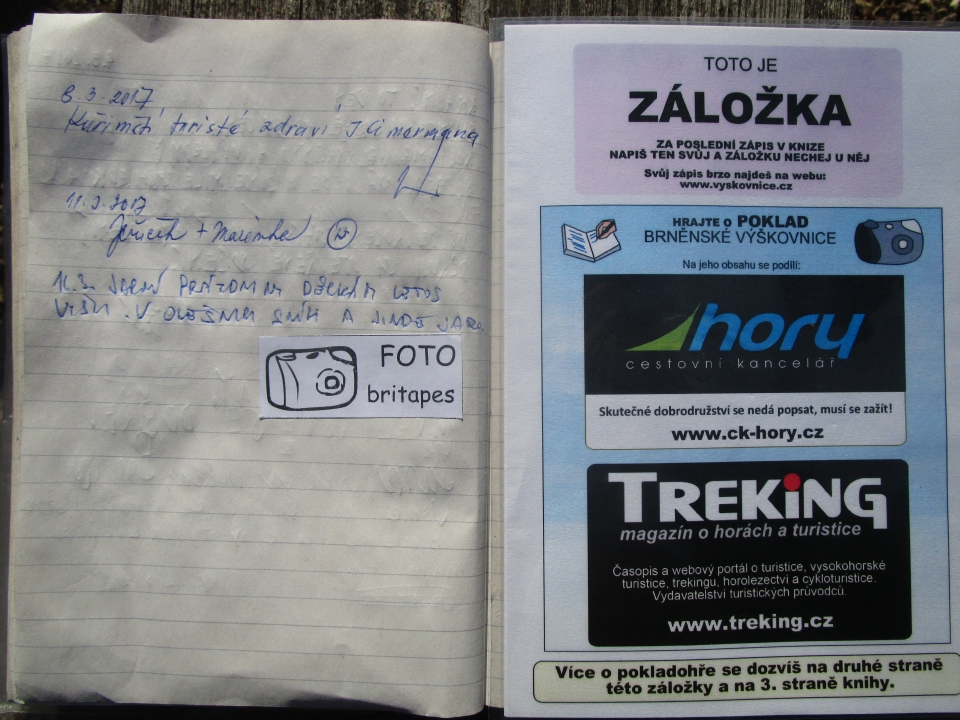 8.3.2017
Kuřimští turisté zdraví
11.3.2017
Jeřicek + Mařenka
11.3.
LETOS
V SNÍH A JINDE JARO
FOTO
britapes
TOTO JE
ZÁLOŽKA
ZA POSLEDNÍ ZÁPIS V KNIZE
NAPIŠ TEN SVŮJ A ZÁLOŽKU NECHEJ U NĚJ
Svůj zápis brzo najdeš na webu:
www.vyskovnice.cz
HRAJTE O POKLAD
BRNĚNSKÉ VÝŠKOVNICE
Na jeho obsahu se podílí:
hory
cestovní kancelář
Skutečné dobrodružství se nedá popsat, musí se zažít!
www.ck-hory.cz
TREKiNG
magazín o horách a turistice
Časopis a webový portál o turistice, vysokohorské
turistice, trekingu, horolezectví a cykloturistice.
Vydavatelství turistických průvodců.
www.treking.cz
Více o pokladohře se dozvíš na druhé straně
této záložky a na 3. straně knihy.